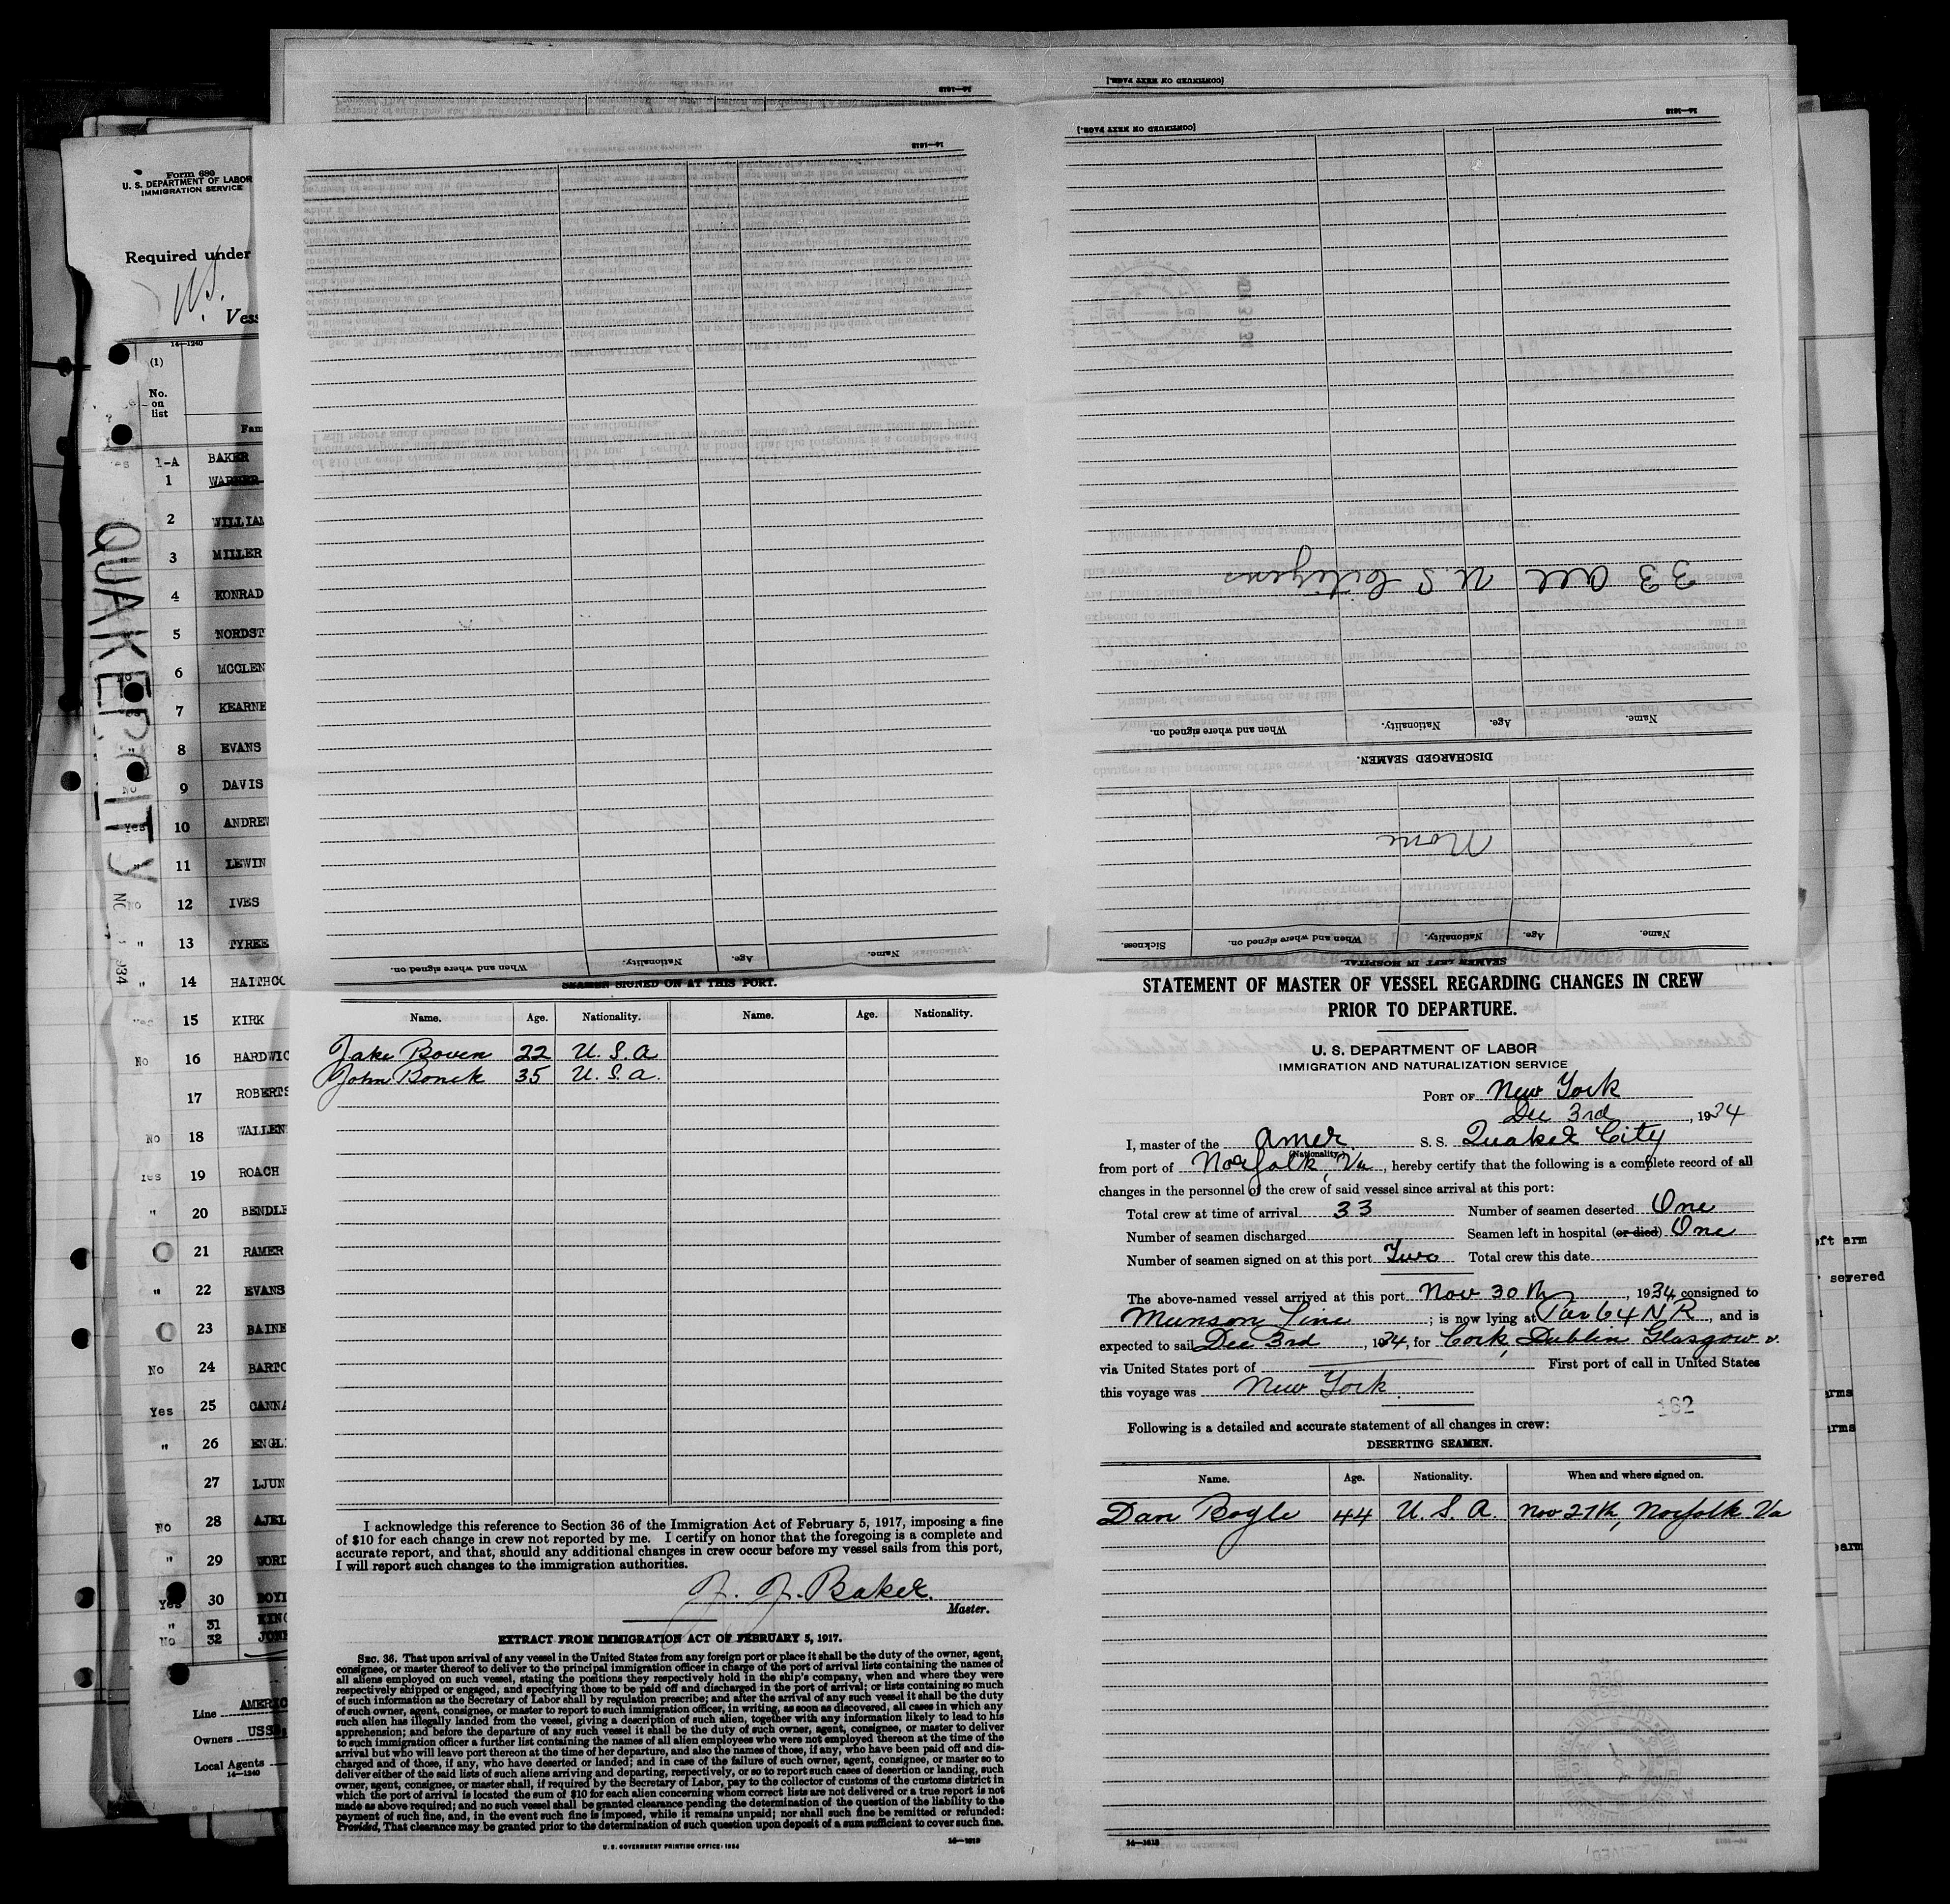 Form 680
U. S. DEPARTMENT OF LABOR
IMMIGRATION SERVICE
Required under
Vess
14—1240
(1)
No.
on
list
Fam
1-A BAKER
1 WARNER
2 WILLIAM
3 MILLER
4 KONRAD
5 NORDST
6 MCCLEN
7 KEARNE
8 EVANS
9 DAVIS
Yes 10 ANDREW
11 LEWIN
No 12 IVES
" 13 TYREE
" 14 HAITHCO
Yes 15 KIRK
No 16 HARDWIC
17 ROBERTS
No 18 WALLEN
Yes 19 ROACH
" 20 BENDLE
21 RAMER
" 22 EVANS
23 BAINE
No 24 BARTO
Yes 25 CANNA
" 26 ENGL
27 LJUN
No 28 AJEL
" 29 WORD
Yes 30 BOYE
" 31 KING
No 32 JONE
Line AMERIC
Owners USSB
Local Agents
14—1240
QUAKER CITY
[CONTINUED ON NEXT PAGE.]
14—1613
[CONTINUED ON NEXT PAGE.]
14—1613
14—1613
14—1613
33 all U.S Citizens
Name. Age. Nationality. When and where signed on.
DISCHARGED SEAMEN.
None
Name. Age. Nationality. When and where signed on. Sickness.
SEAMEN LEFT IN HOSPITAL
Name. Age. Nationality. When and where signed on.
SEAMEN SIGNED ON AT THIS PORT.
Name. Age. Nationality. Name. Age. Nationality.
Jake Boven 22 U. S. A
John Bonek 35 U. S. A.
I acknowledge this reference to Section 36 of the Immigration Act of February 5, 1917, imposing a fine
of $10 for each change in crew not reported by me. I certify on honor that the foregoing is a complete and
accurate report, and that, should any additional changes in crew occur before my vessel sails from this port,
I will report such changes to the immigration authorities.
J. J. Baker.
Master.
EXTRACT FROM IMMIGRATION ACT OF FEBRUARY 5, 1917.
SEC. 36. That upon arrival of any vessel in the United States from any foreign port or place it shall be the duty of the owner, agent,
consignee, or master thereof to deliver to the principal immigration officer in charge of the port of arrival lists containing the names of
all aliens employed on such vessel, stating the positions they respectively hold in the ship's company, when and where they were
respectively shipped or engaged, and specifying those to be paid off and discharged in the port of arrival; or lists containing so much
of such information as the Secretary of Labor shall by regulation prescribe; and after the arrival of any such vessel it shall be the duty
of such owner, agent, consignee, or master to report to such immigration officer, in writing, as soon as discovered, all cases in which any
such alien has illegally landed from the vessel, giving a description of such alien, together with any information likely to lead to his
apprehension; and before the departure of any such vessel it shall be the duty of such owner, agent, consignee, or master to deliver
to such immigration officer a further list containing the names of all alien employees who were not employed thereon at the time of the
arrival but who will leave port thereon at the time of her departure, and also the names of those, if any, who have been paid off and dis-
charged and of those, if any, who have deserted or landed; and in case of the failure of such owner, agent, consignee, or master so to
deliver either of the said lists of such aliens arriving and departing, respectively, or so to report such cases of desertion or landing, such
owner, agent, consignee, or master shall, if required by the Secretary of Labor, pay to the collector of customs of the customs district in
which the port of arrival is located the sum of $10 for each alien concerning whom correct lists are not delivered or a true report is not
made as above required; and no such vessel shall be granted clearance pending the determination of the question of the liability to the
payment of such fine, and, in the event such fine is imposed, while it remains unpaid; nor shall such fine be remitted or refunded:
Provided, That clearance may be granted prior to the determination of such question upon deposit of a sum sufficient to cover such fine.
U. S. GOVERNMENT PRINTING OFFICE: 1934 14—1613
STATEMENT OF MASTER OF VESSEL REGARDING CHANGES IN CREW
PRIOR TO DEPARTURE.
U. S. DEPARTMENT OF LABOR
IMMIGRATION AND NATURALIZATION SERVICE
PORT OF New York
Dec 3rd, 1934
I, master of the Amer S. S. Quaker City
(Nationality)
from port of Norfolk, Va, hereby certify that the following is a complete record of all
changes in the personnel of the crew of said vessel since arrival at this port:
Total crew at time of arrival 33 Number of seamen deserted One
Number of seamen discharged Seamen left in hospital (or died) One
Number of seamen signed on at this port Two Total crew this date
The above-named vessel arrived at this port Nov 30th, 1934 consigned to
Munson Line; is now lying at Pier 64 N R, and is
expected to sail Dec 3rd, 1934, for Cork, Dublin Glasgow
via United States port of First port of call in United States
this voyage was New York.
182
Following is a detailed and accurate statement of all changes in crew:
DESERTING SEAMEN.
Name. Age. Nationality. When and where signed on.
Dan Bogle 44 U. S. A. Nov 27th, Norfolk Va
14—1613
eft arm
severed
arms
arms
arm